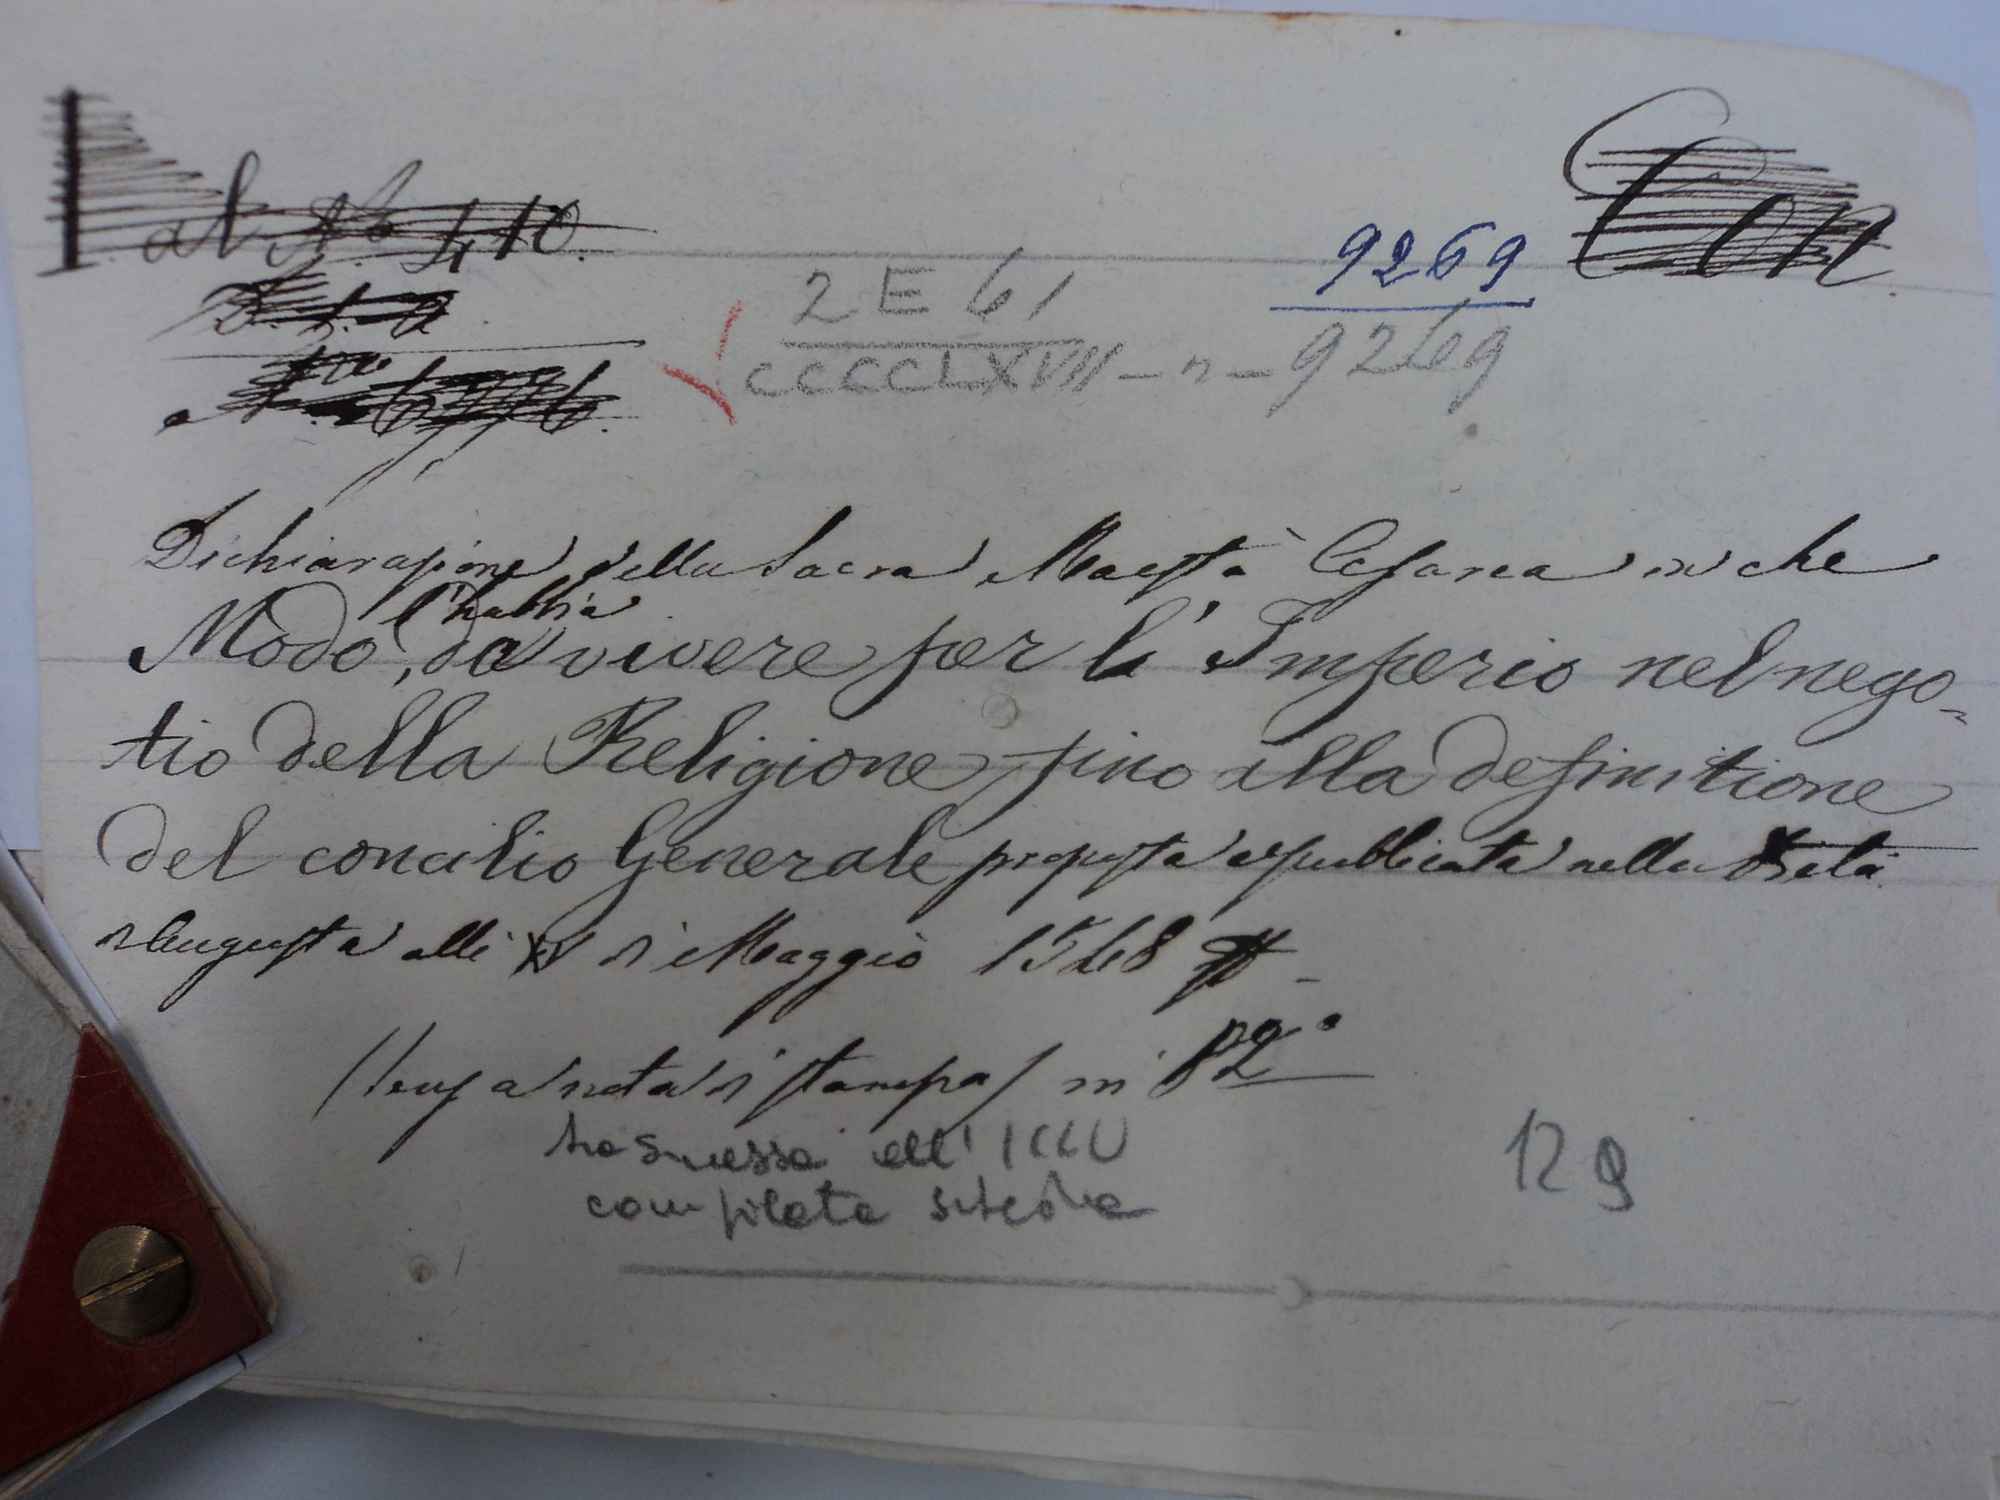 al No 410.
Con
9269
2 E 61
CCCCLXVIII - n - 9269
Dichiarazione della Sacra Maestà Cesarea in che
l'habbia
Modo, da vivere per l'Imperio nel nego-
tio della Religione fino alla definitione
del concilio Generale proposta e pubblicata nella Dieta
d'Augusta alli XV di Maggio 1548
(senza nota di stampa) in 8º
trasmessa all'ICCU
compilata scheda
129